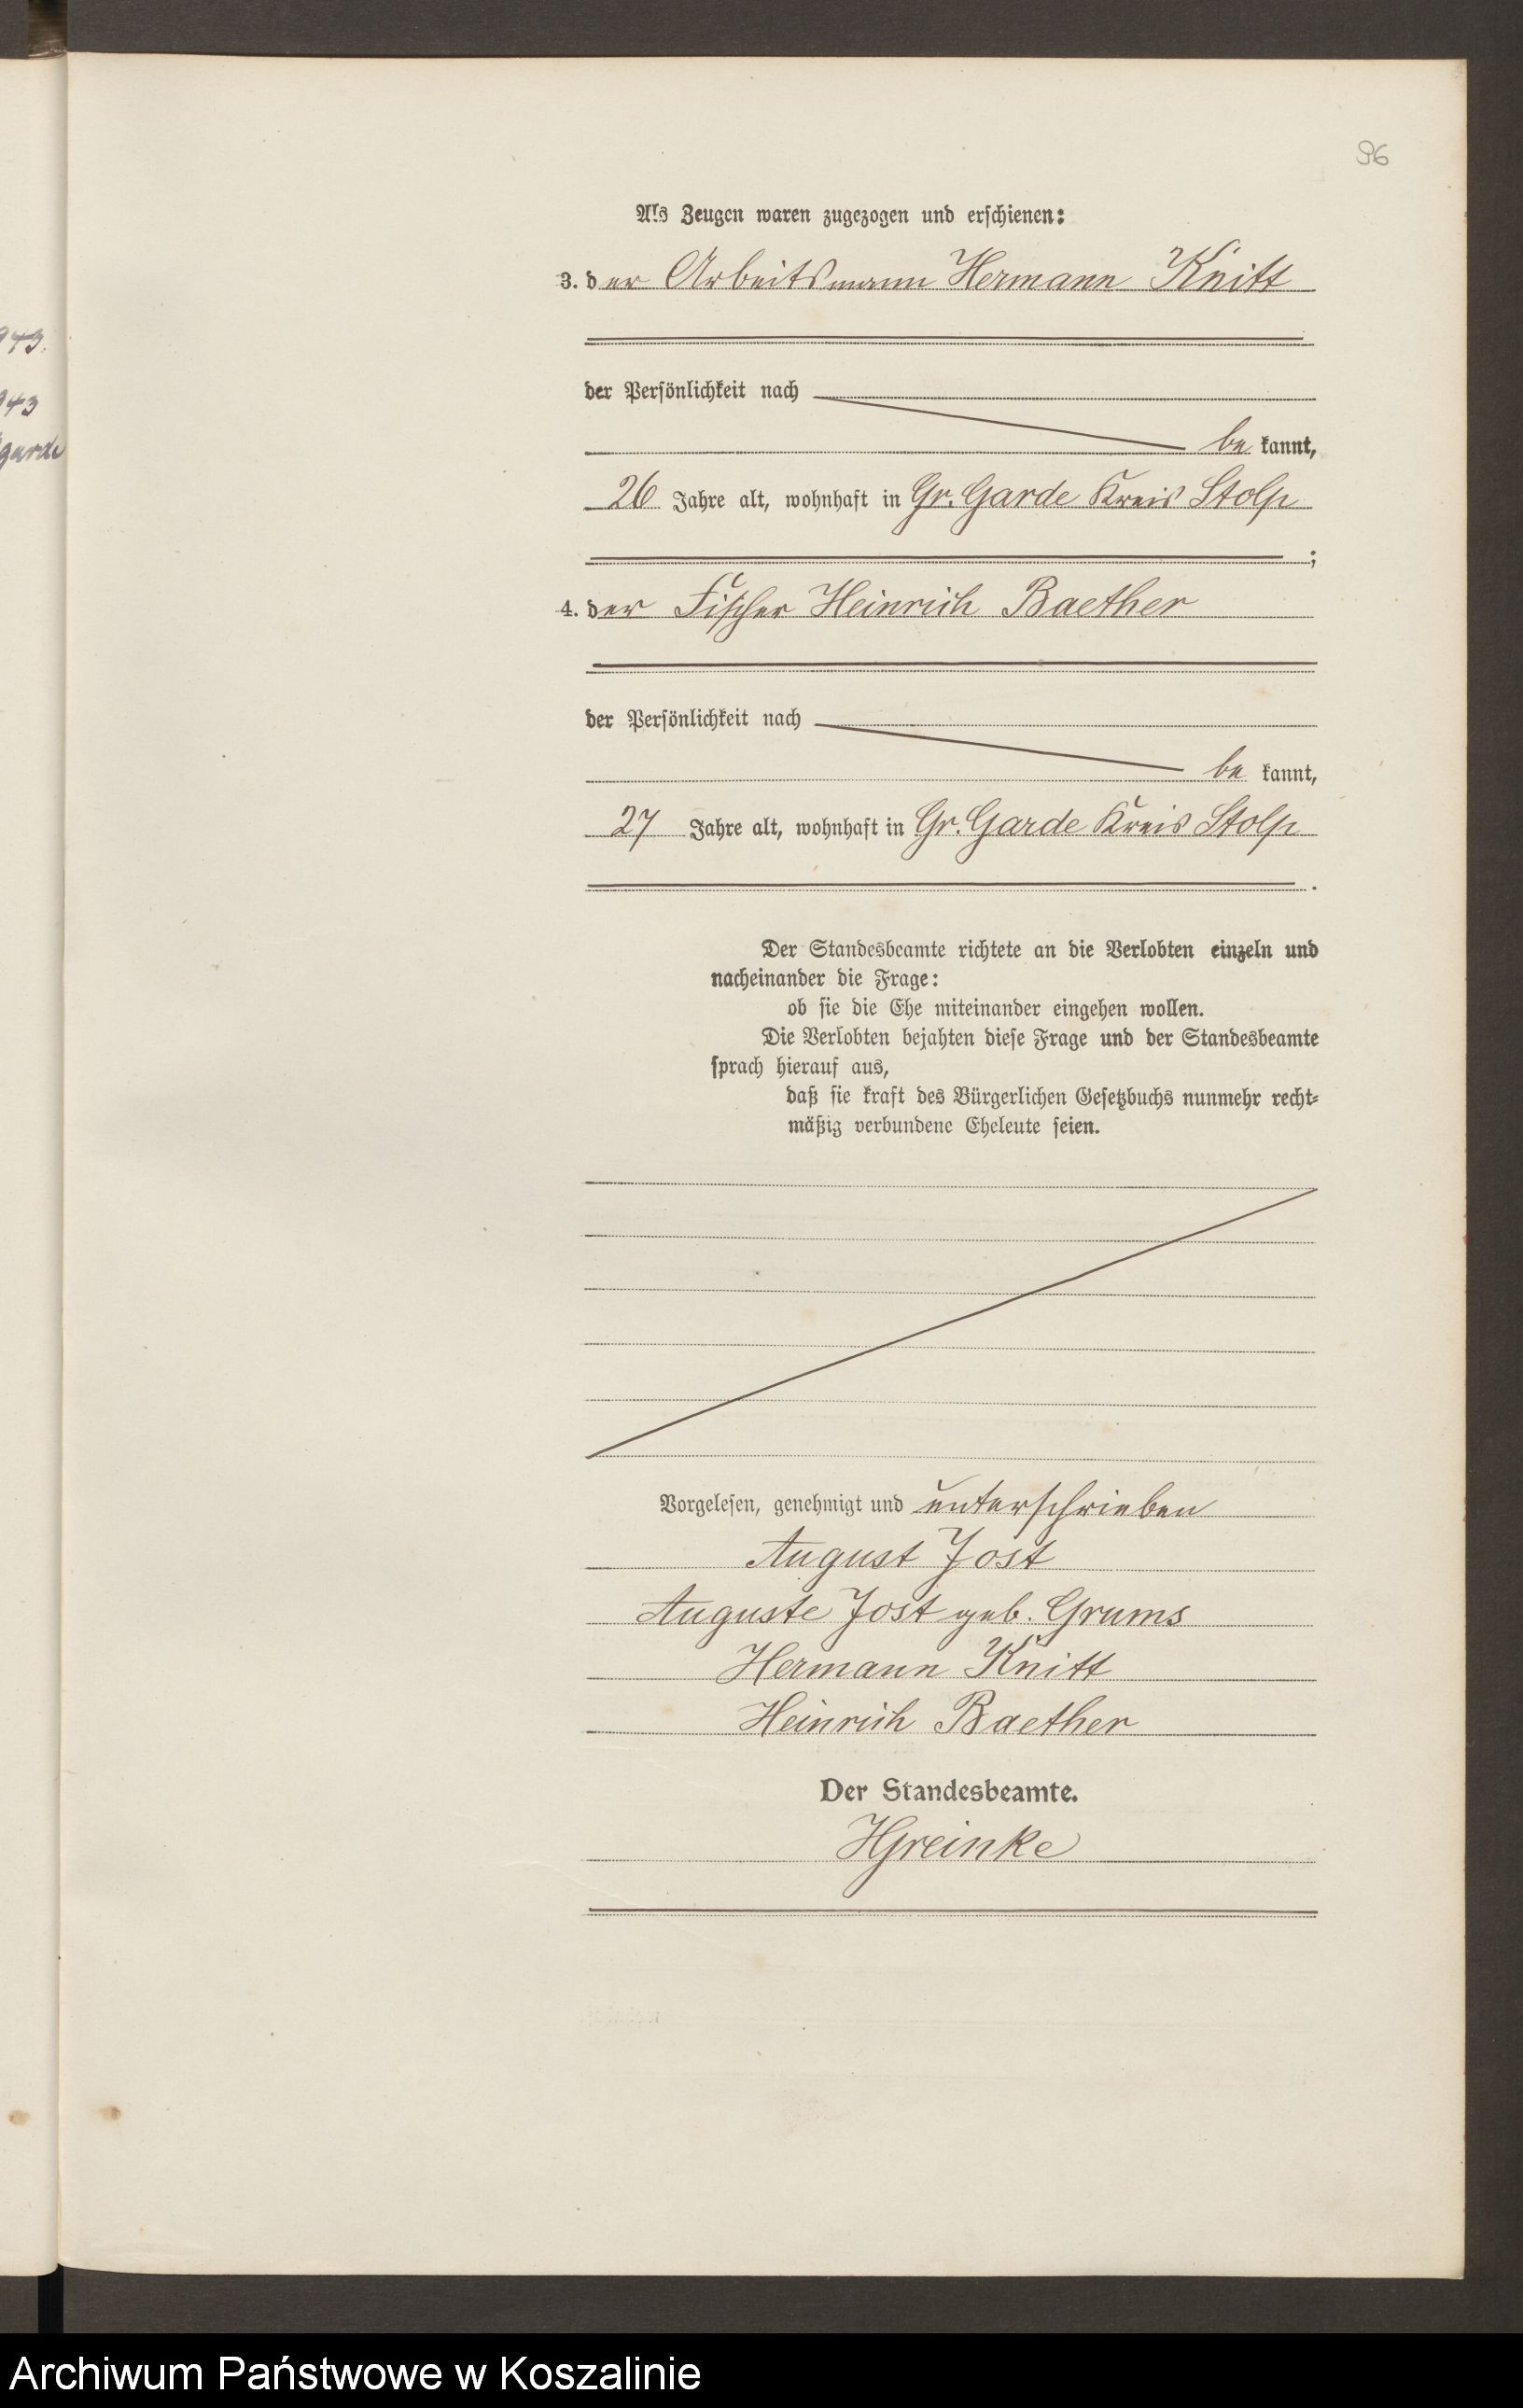 96
943.
943
garde
Als Zeugen waren zugezogen und erschienen:
3. der Arbeitsmann Hermann Knitt
der Persönlichkeit nach
be kannt,
26 Jahre alt, wohnhaft in Gr. Garde Kreis Stolp
;
4. der Fischer Heinrich Baether
der Persönlichkeit nach
be kannt,
27 Jahre alt, wohnhaft in Gr. Garde Kreis Stolp
.
Der Standesbeamte richtete an die Verlobten einzeln und
nacheinander die Frage:
ob sie die Ehe miteinander eingehen wollen.
Die Verlobten bejahten diese Frage und der Standesbeamte
sprach hierauf aus,
daß sie kraft des Bürgerlichen Gesetzbuchs nunmehr recht-
mäßig verbundene Eheleute seien.
Vorgelesen, genehmigt und unterschrieben
August Jost
Auguste Jost geb. Grums
Hermann Knitt
Heinrich Baether
Der Standesbeamte.
HGreinke
Archiwum Państwowe w Koszalinie